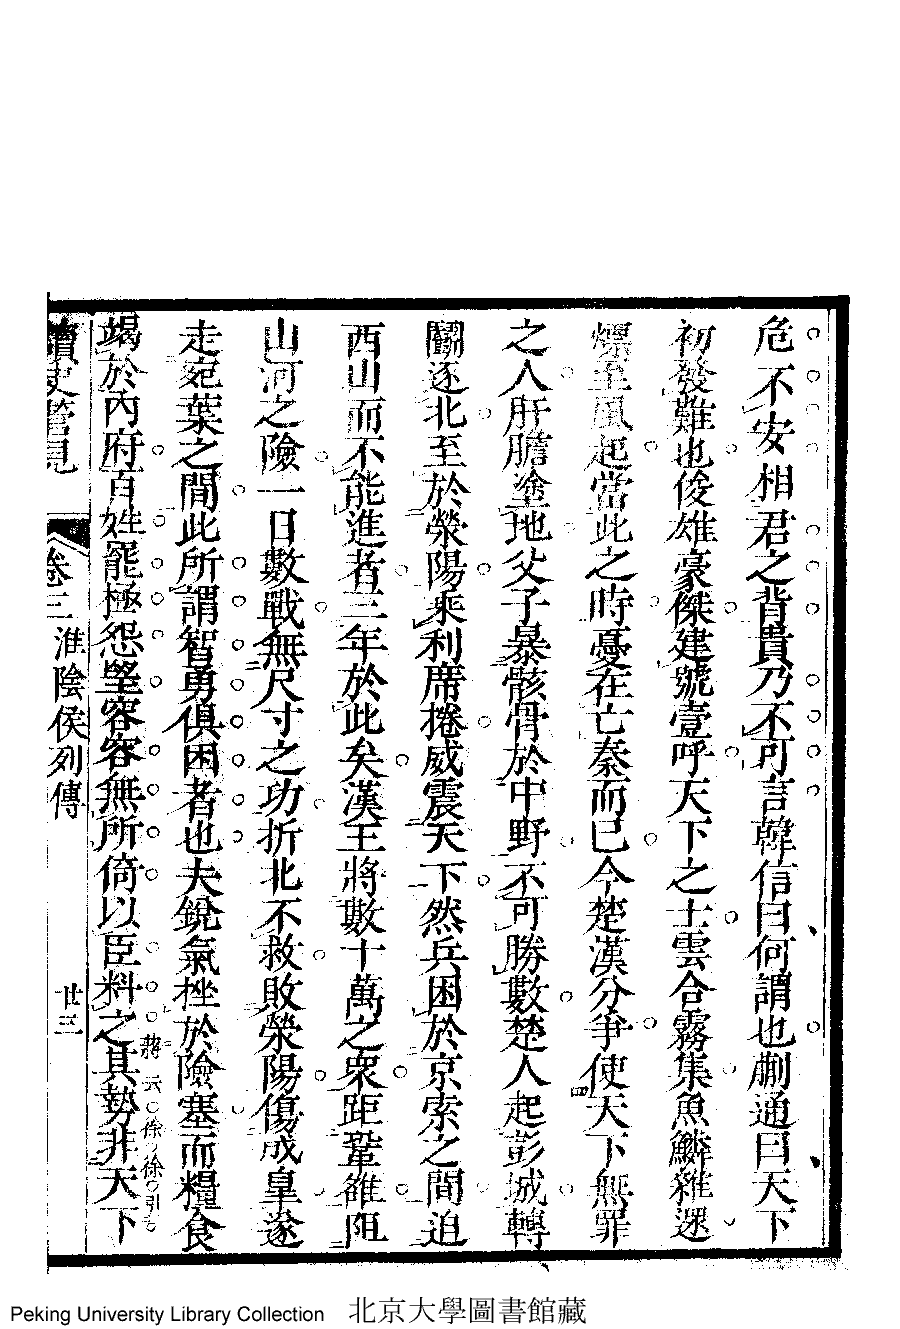 危不安相君之背貴乃不可言韓信曰何謂也蒯通曰天下
初發難也俊雄豪傑建號壹呼天下之士雲合霧集魚鱗雜遝
熛至風起當此之時憂在亡秦而已今楚漢分爭使天下無罪
之人肝膽塗地父子暴骸骨於中野不可勝數楚人起彭城轉
鬭逐北至於滎陽乘利席捲威震天下然兵困於京索之間迫
西山而不能進者三年於此矣漢王將數十萬之衆距鞏雒阻
山河之險一日數戰無尺寸之功折北不救敗滎陽傷成皐遂
走宛葉之間此所謂智勇俱困者也夫銳氣挫於險塞而糧食
竭於內府百姓罷極怨望容容無所倚以臣料之其勢非天下
蔣云徐徐引
讀史管見 卷三 淮陰侯列傳 廿三
Peking University Library Collection 北京大學圖書館藏